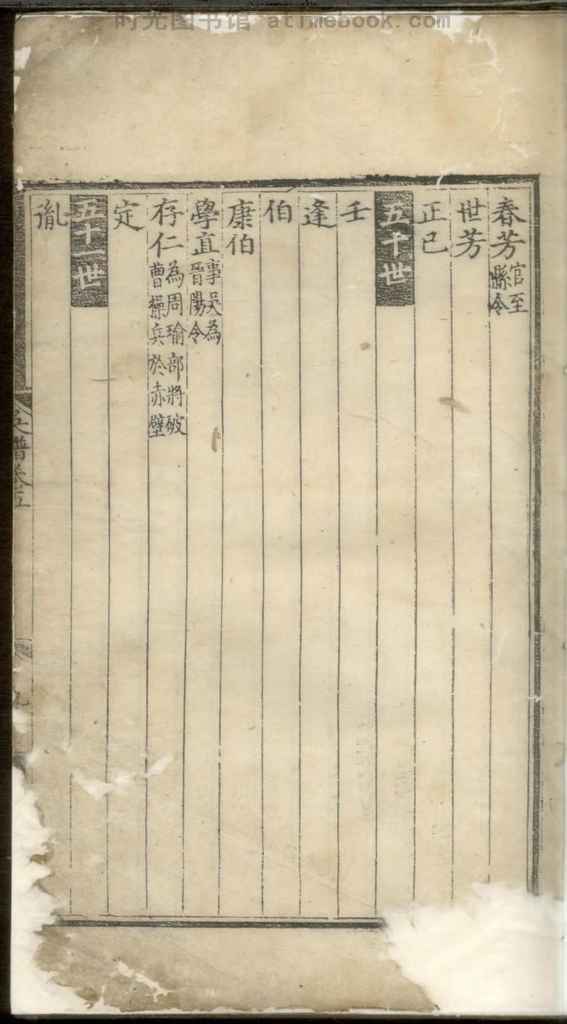 时光图书馆 atimebook.com
春芳官至縣令
世芳
正已
五十世
壬
逢
伯
康伯
學直事吳為晉陽令
存仁為周瑜部將破曹操兵於赤壁
定
五十一世
胤